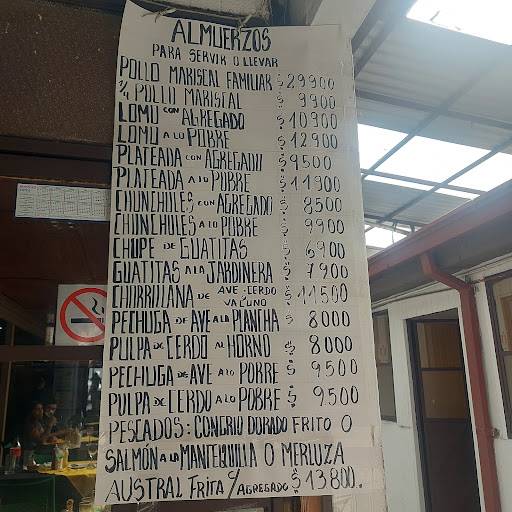 ALMUERZOS
PARA SERVIR O LLEVAR
POLLO MARISCAL FAMILIAR $29900
1/4 POLLO MARISCAL $ 9900
LOMO CON AGREGADO $10900
LOMO A LO POBRE $12900
PLATEADA CON AGREGADO $9500
PLATEADA A LO POBRE $11900
CHUNCHULES CON AGREGADO $ 8500
CHINCHULES A LO POBRE $ 9900
CHUPE DE GUATITAS $ 6900
GUATITAS A LA JARDINERA $ 7900
CHORRILLANA DE AVE-CERDO VACUNO $11500
PECHUGA DE AVE A LA PLANCHA $ 8000
PULPA DE CERDO AL HORNO $ 8000
PECHUGA DE AVE A LO POBRE $ 9500
PULPA DE CERDO A LO POBRE $ 9.500
PESCADOS: CONGRIO DORADO FRITO O
SALMÓN A LA MANTEQUILLA O MERLUZA
AUSTRAL FRITA C/AGREGADO $13800.